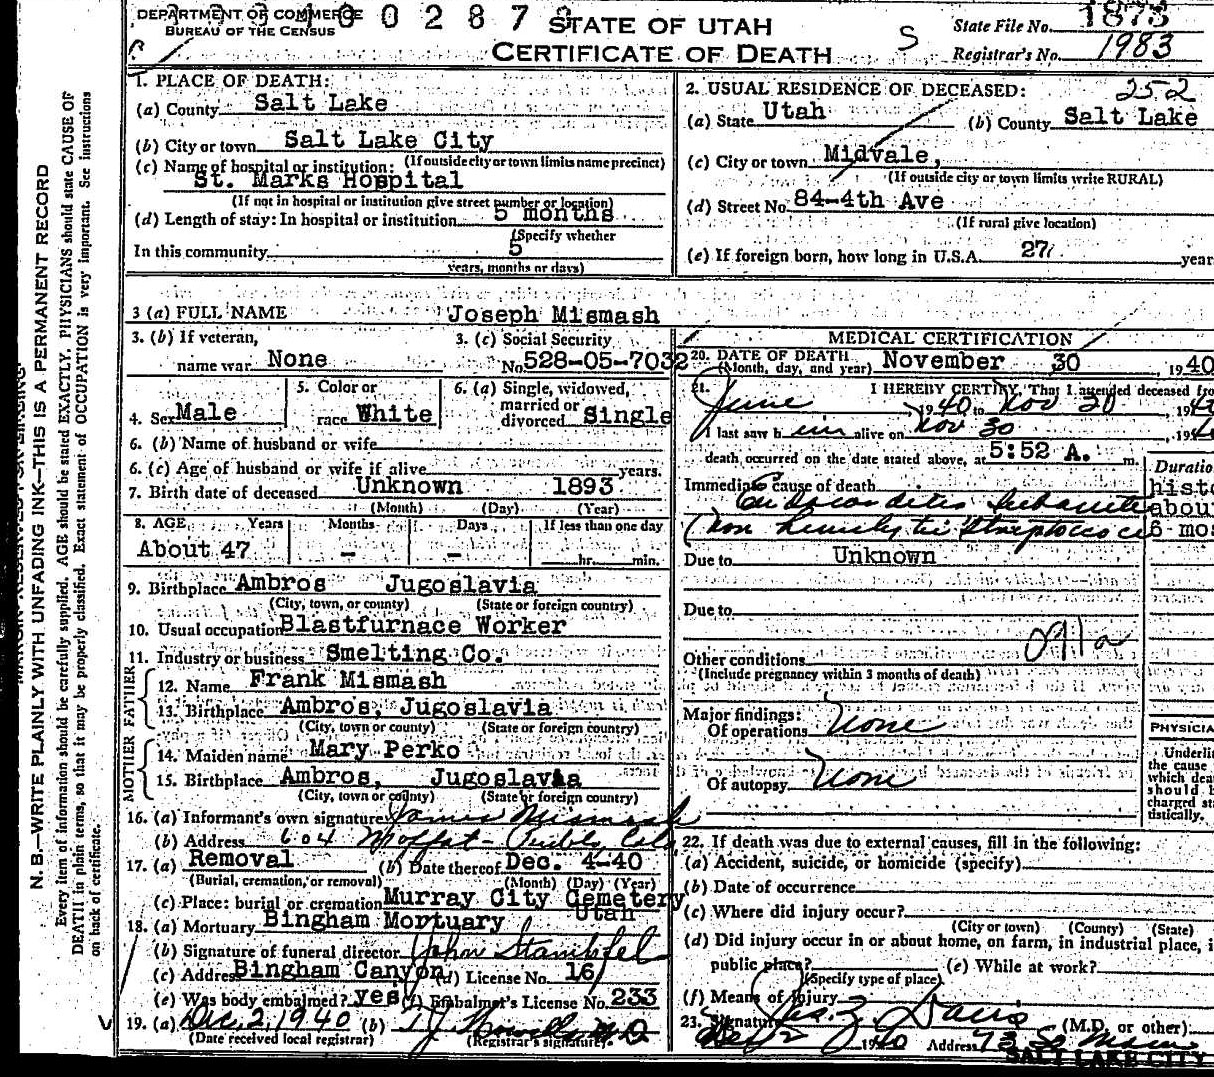 DEPARTMENT OF COMMERCE
BUREAU OF THE CENSUS
0 2 8 7
STATE OF UTAH
CERTIFICATE OF DEATH
S
State File No. 1873
Registrar's No. 1983
N. B.—WRITE PLAINLY WITH UNFADING INK—THIS IS A PERMANENT RECORD
Every item of information should be carefully supplied. AGE should be stated EXACTLY. PHYSICIANS should state CAUSE OF
DEATH in plain terms, so that it may be properly classified. Exact statement of OCCUPATION is very important. See instructions
on back of certificate.
1. PLACE OF DEATH:
(a) County Salt Lake
(b) City or town Salt Lake City
(If outside city or town limits name precinct)
(c) Name of hospital or institution:
St. Marks Hospital
(If not in hospital or institution give street number or location)
(d) Length of stay: In hospital or institution 5 months
(Specify whether
In this community 5
years, months or days)
2. USUAL RESIDENCE OF DECEASED: 252
(a) State Utah (b) County Salt Lake
(c) City or town Midvale,
(If outside city or town limits write RURAL)
(d) Street No. 84-4th Ave
(If rural give location)
(e) If foreign born, how long in U.S.A. 27 years
3 (a) FULL NAME Joseph Mismash
3. (b) If veteran,
name war None
3. (c) Social Security
No. 528-05-7032
4. Sex Male
5. Color or
race White
6. (a) Single, widowed,
married or
divorced Single
6. (b) Name of husband or wife
6. (c) Age of husband or wife if alive years.
7. Birth date of deceased Unknown 1893
(Month) (Day) (Year)
8. AGE Years Months Days If less than one day
About 47 - - hr. min.
9. Birthplace Ambros Jugoslavia
(City, town, or county) (State or foreign country)
10. Usual occupation Blastfurnace Worker
11. Industry or business Smelting Co.
FATHER
12. Name Frank Mismash
13. Birthplace Ambros, Jugoslavia
(City, town or county) (State or foreign country)
MOTHER
14. Maiden name Mary Perko
15. Birthplace Ambros, Jugoslavia
(City, town or county) (State or foreign country)
16. (a) Informant's own signature James Mismash
(b) Address 604 Moffat - Colo
17. (a) Removal (b) Date thereof Dec. 4-40
(Burial, cremation, or removal) (Month) (Day) (Year)
(c) Place: burial or cremation Murray City Cemetery
Utah
18. (a) Mortuary Bingham Mortuary
(b) Signature of funeral director John Stampfel
(c) Address Bingham Canyon (d) License No. 16
(e) Was body embalmed? yes (f) Embalmer's License No. 233
19. (a) Dec, 2, 1940 (b)
(Date received local registrar) (Registrar's signature)
MEDICAL CERTIFICATION
20. DATE OF DEATH
(Month, day, and year) November 30, 1940
21. I HEREBY CERTIFY, That I attended deceased from
June, 1940 to Nov 30, 19
I last saw him alive on Nov 30, 19
death occurred on the date stated above, at 5:52 A. m.
Immediate cause of death
Endocarditis Subacute
(non hemolytic Streptococcus
Duration
histo
about
6 mos
Due to Unknown
Due to
Other conditions 091a
(Include pregnancy within 3 months of death)
Major findings:
Of operations None
Of autopsy None
PHYSICIA
Underlin
the cause
which dea
should b
charged sta
tistically.
22. If death was due to external causes, fill in the following:
(a) Accident, suicide, or homicide (specify)
(b) Date of occurrence
(c) Where did injury occur?
(City or town) (County) (State)
(d) Did injury occur in or about home, on farm, in industrial place, i
public place? (e) While at work?
(Specify type of place)
(f) Means of Injury
23. Signature Davis (M.D. or other)
2 1940 Address 73 So Main
SALT LAKE CITY